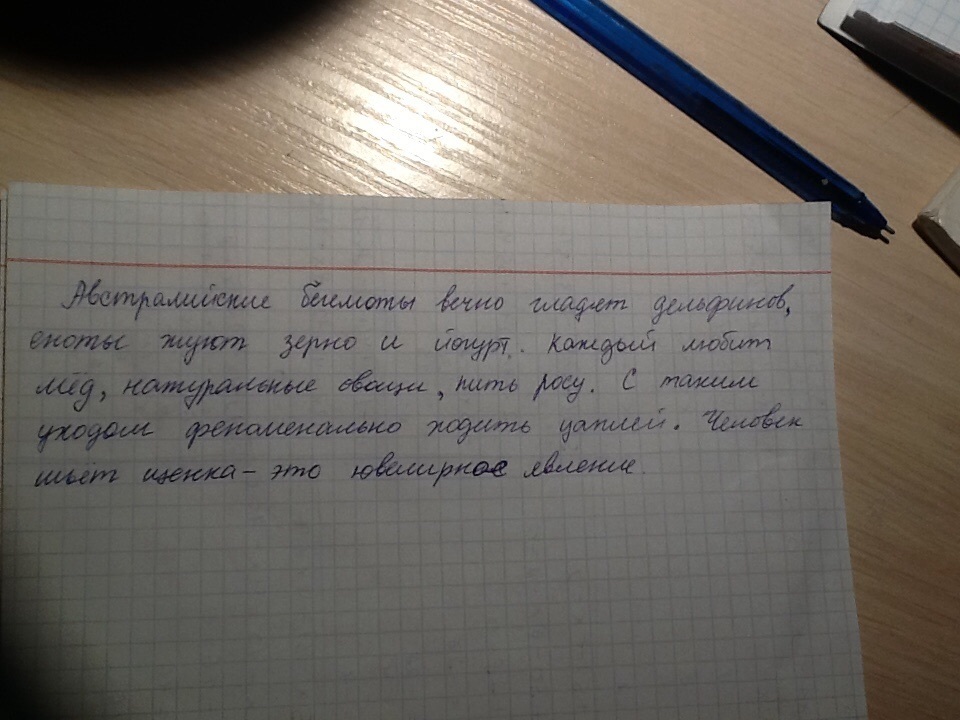 Австралийские бегемоты вечно гладят дельфинов,
еноты жуют зерно и йогурт. Каждый любит
мёд, натуральные овощи, пить росу. С таким
уходом феноменально ходить цаплей. Человек
шьёт щенка – это ювелирное явление.